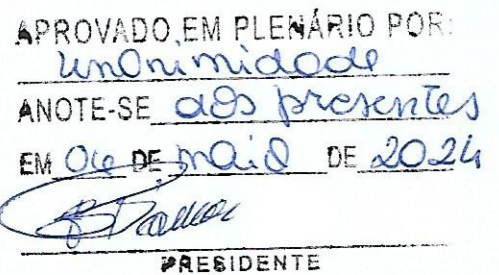 APROVADO EM PLENÁRIO POR:
unanimidade
ANOTE-SE dos presentes
EM 06 DE maio DE 2024
PRESIDENTE